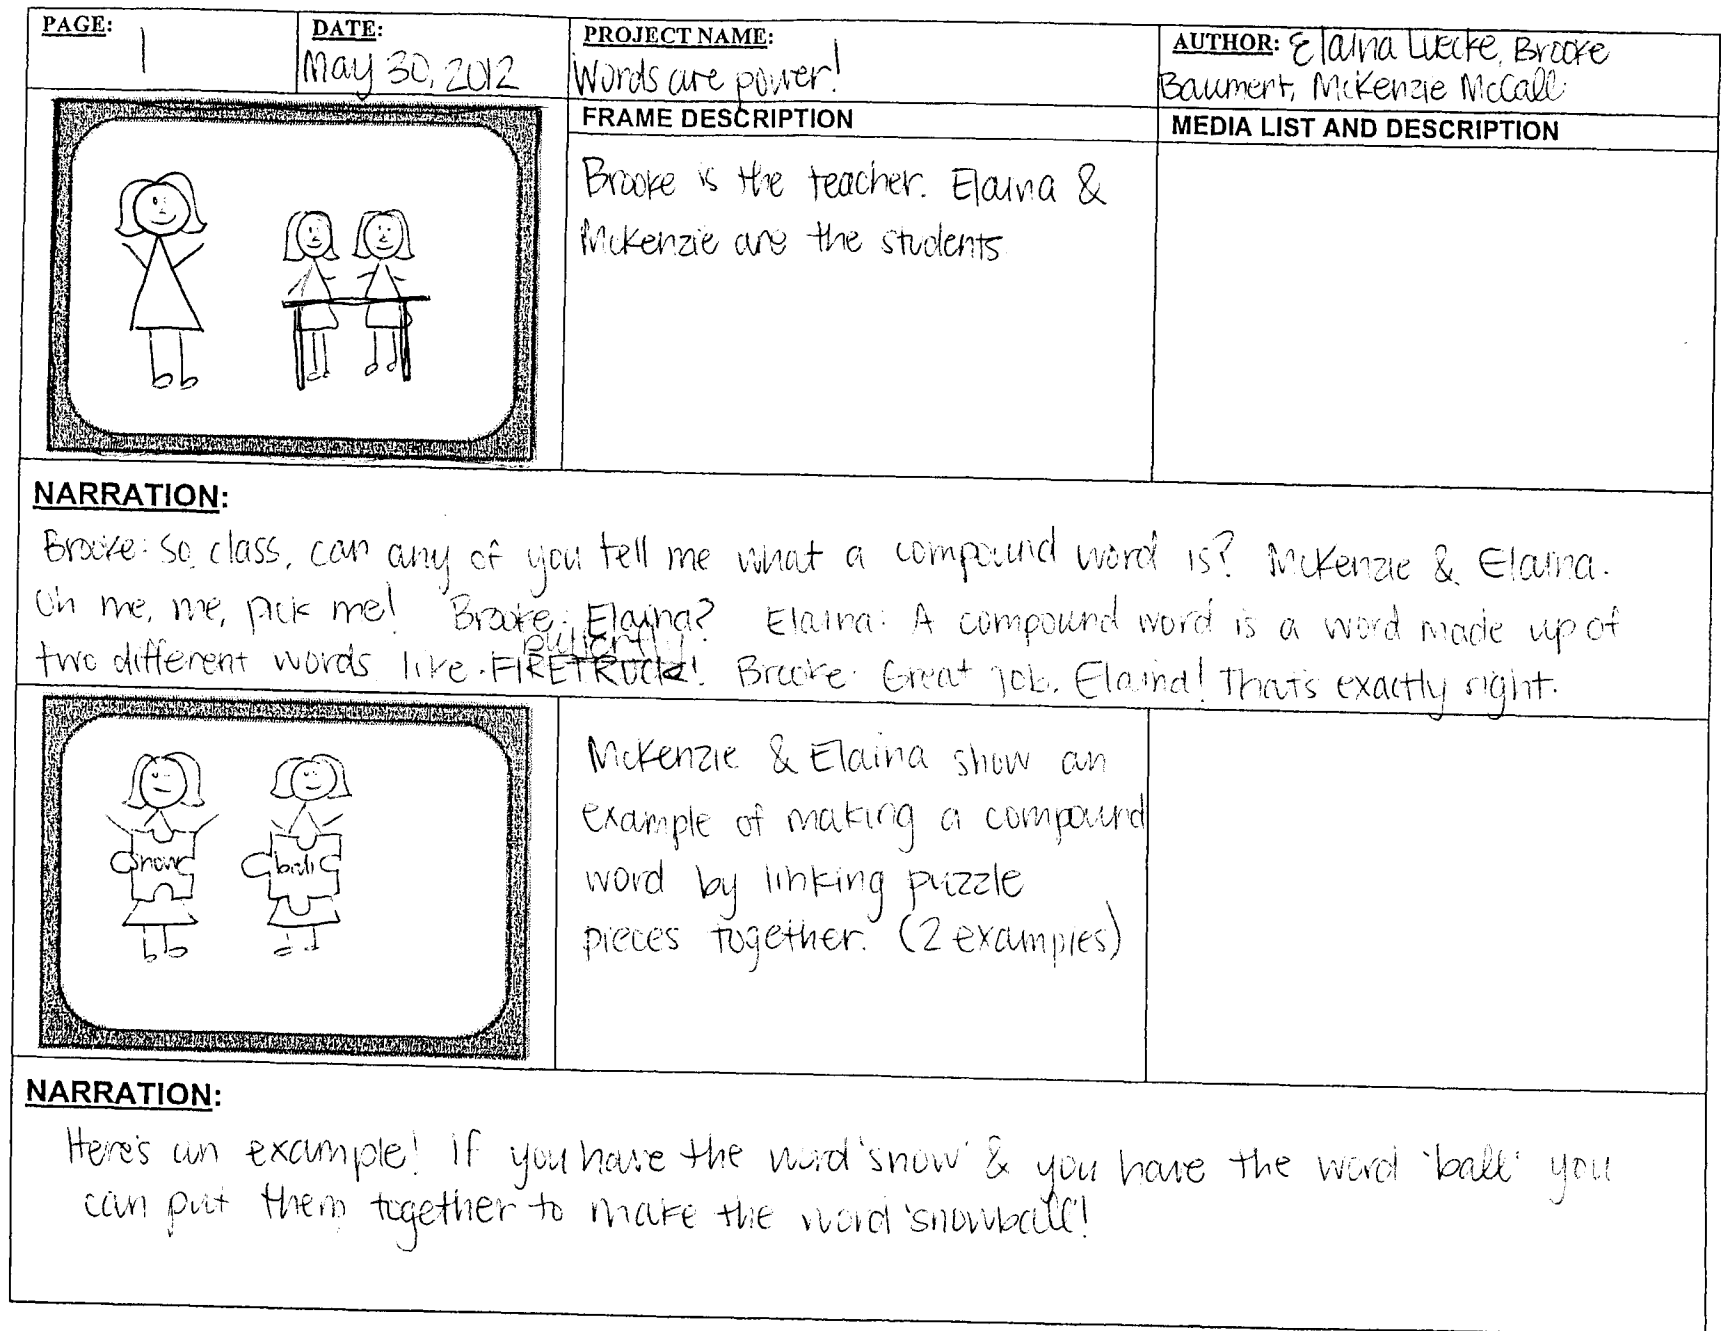 PAGE: 1
DATE: May 30, 2012
PROJECT NAME: Words are power!
AUTHOR: Elaina Luecke, Brooke
Baumert, McKenzie McCall
FRAME DESCRIPTION
MEDIA LIST AND DESCRIPTION
Brooke is the teacher. Elaina &
McKenzie are the students
NARRATION:
Brooke: So class, can any of you tell me what a compound word is? McKenzie & Elaina.
Oh me, me, pick me! Brooke: Elaina? Elaina: A compound word is a word made up of
butterfly
two different words like FIRETRUCK! Brooke: Great job, Elaina! Thats exactly right.
snow ball
McKenzie & Elaina show an
example of making a compound
word by linking puzzle
pieces together. (2 examples)
NARRATION:
Here's an example! If you have the word 'snow' & you have the word 'ball' you
can put them together to make the word 'snowball'!